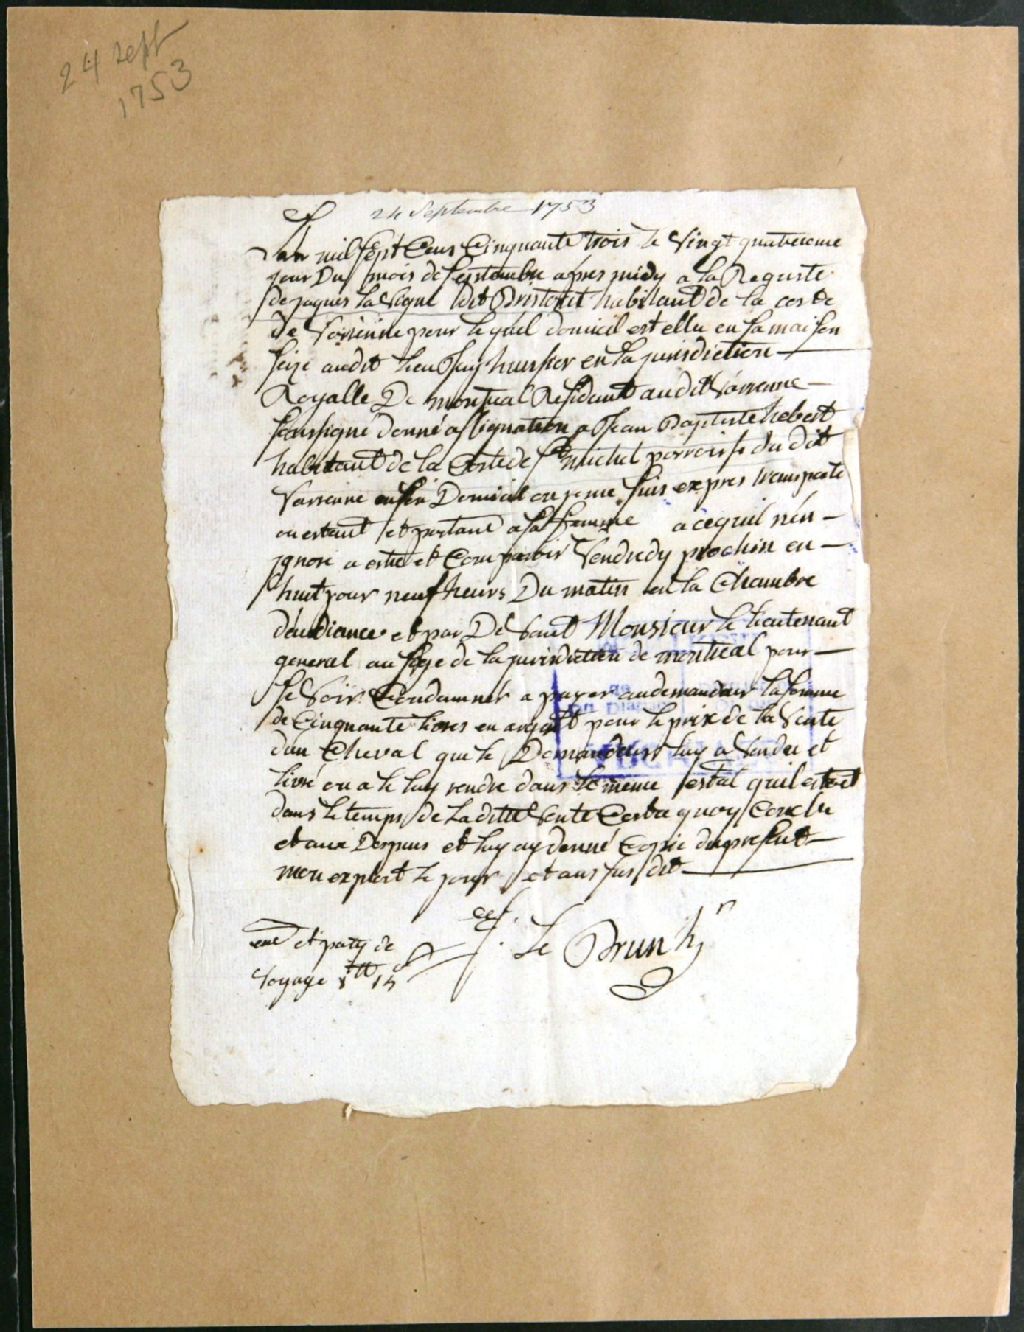 24 sept
1753
24 Septembre 1753
Lan mil sept Cens Cinquante trois le Vingt quatrieme
jour Du mois de septembre apres midy a la Requeste
de jaques la Vigne dit habitant de la coste
de Varenne pour le quel domicil est ellu en sa maison
size audit lieu Jay huissier en la jurisdiction
Royalle De montreal Residant audit Varenne
soussigne donné assignation a Jean Baptiste hebert
habitant de la Coste de St michel parroisse du dit
Varenne en son Domicil ou je me suis expres transporté
ou estant et parlant a sa femme a ce quil nen
jgnore a estre et Comparoir Vendredy prochin en
huit jour neuf heurs Du matin en la Chambre
daudiance et par De vant Monsieur le lieutenant
general au siege de la jurisdiction de montreal pour
se Voir Condamner a payer au demandeur la somme
de Cinquante livres en argent pour le prix de la Vente
dun Cheval que le Demandeur luy a Vendu et
livré ou a le luy rendre dans le meme estat quil estoit
dans le temps de la ditte Vente Cest a quoy Conclu
et aux Depens et luy ay donné Copie du present
mon exploit le jour et ans susdit
Le Brun hr
et party de
voyage